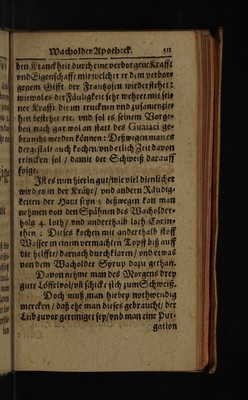 Wacholder Apotheck. 511
ben Kranckheit durch eine verborgene Krafft
vnd Eigenschafft mit welcher er dem verbor-
genem Gifft der Frantzosen widerstehet:
wiewol es der Fäuligkeit sehr wehret mit sei-
ner Krafft die im trucknen vnd zusamenzie-
hen bestehet etc. vnd sol es seinem Vorge-
ben nach gar wol an statt des Guaiaci ge-
braucht werden können: Deßwegen man es
dergestalt auch kochen vnd etlich Zeit davon
trincken sol / damit der Schweiß darauff
folge.
Ist es nun hierin gut / wie viel dienlicher
wird es in der Krätze / vnd andern Räudig-
keiten der Haut seyn? deßwegen kan man
nehmen von den Spähnen des Wacholder-
holtz 4. loth / vnd anderthalb loth Corin-
then: Dieses kochen mit anderthalb stoff
Wasser in einem vermachten Topff biß auff
die helfft / darnach durchklaren / vnd etwas
von dem Wacholder Syrup dazu gethan.
Davon nehme man des Morgens drey
gute Löffel vol / vñ schicke sich zum Schweiß.
Doch muß man hiebey nothwendig
mercken / daß ehe man dieses gebraucht / der
Leib zuvor gereiniget sey / vnd man eine Pur-
gation